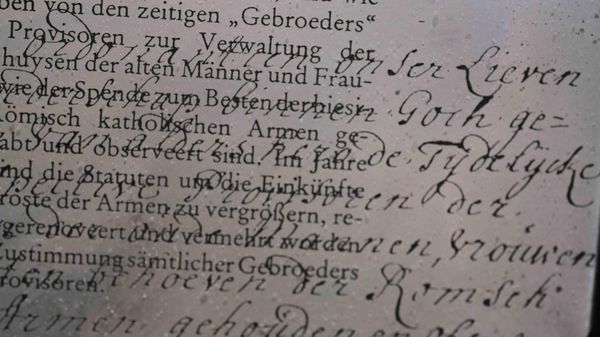 ben von den zeitigen „Gebroeders“
Provisoren zur Verwaltung der
huysen der alten Männer und Frau-
wie der Spende zum Besten der hiesi-
römisch katholischen Armen ge
abt und observeert sind. Im Jahre
ind die Statuten um die Einkünfte
röste der Armen zu vergrößern, re-
gerenoveert und vermehrt worden
Zustimmung sämtlicher Gebroeders
rovisoren.
onser Lieven
binnen Goch ge=
de Tydelycke
Provisoren der
Mannen, Vrouwen
ten behoeven der Romsch
Armen gehouden